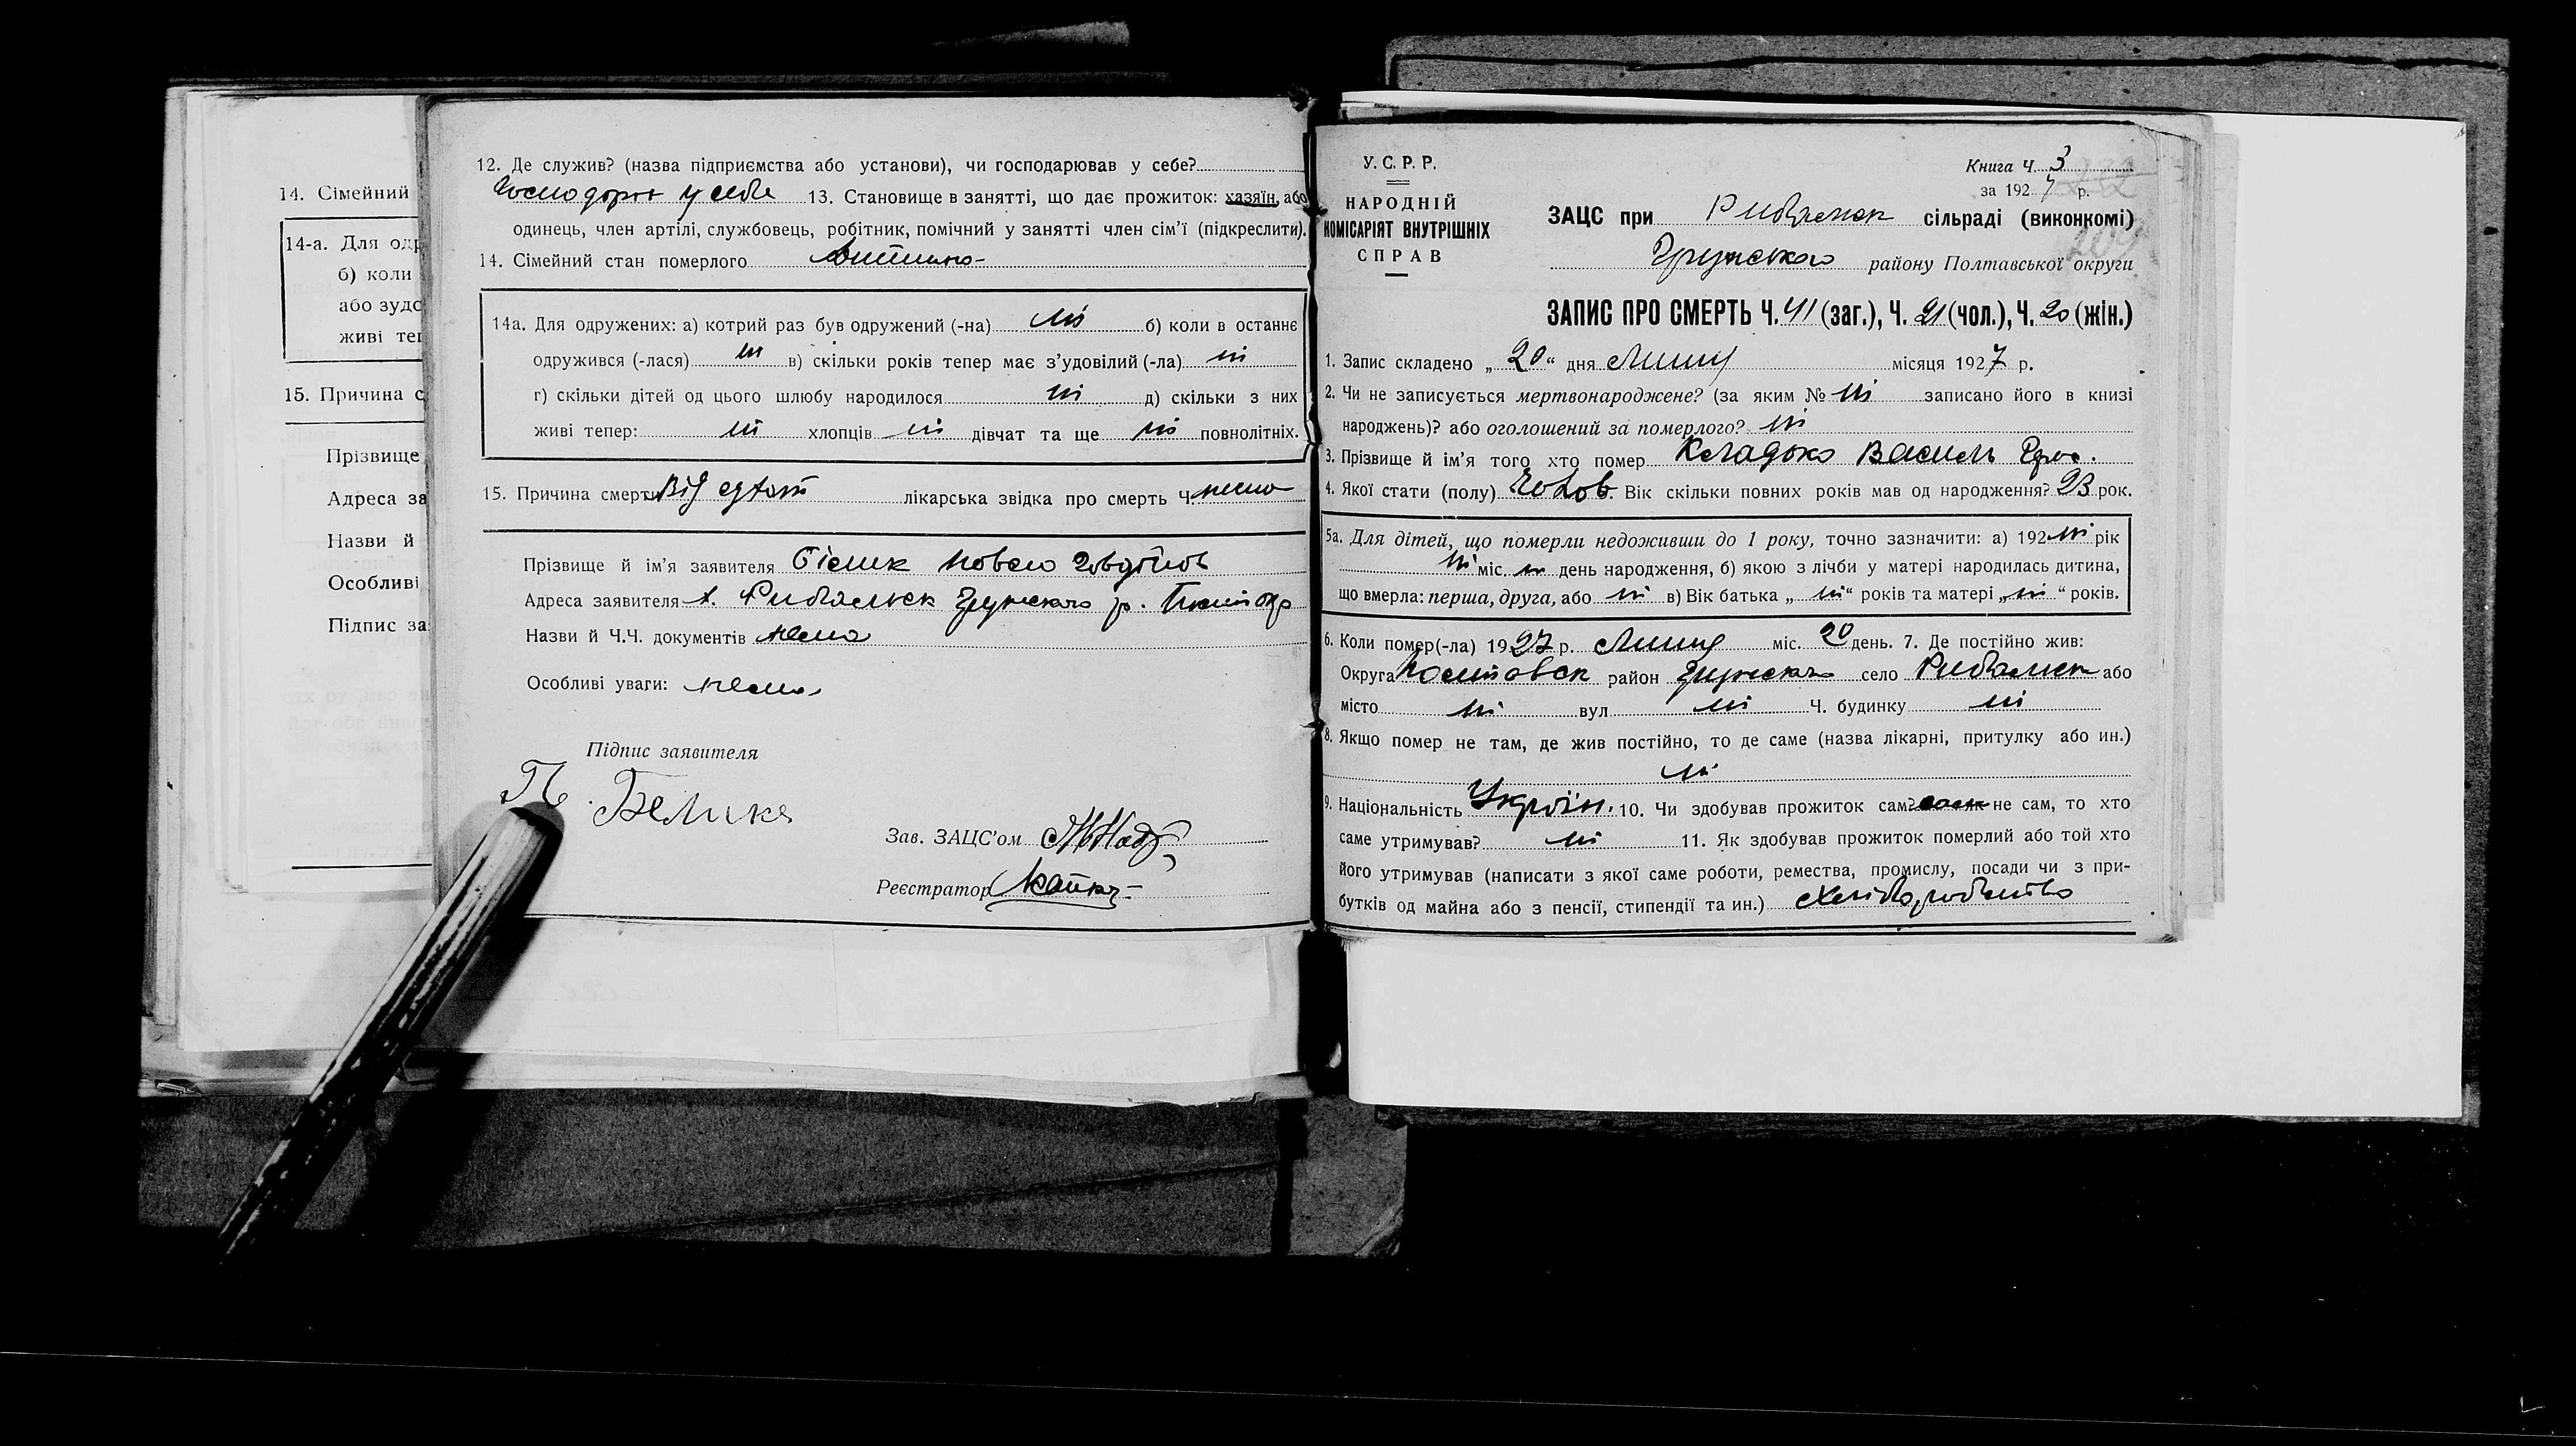 14. Сімейний
14-а. Для одр
б) коли
або зудо
живі теп
15. Причина с
Прізвище
Адреса за
Назви й
Особливі
Підпис за
12. Де служив? (назва підприємства або установи), чи господарював у себе?
у себе 13. Становище в занятті, що дає прожиток: хазяїн, або
одинець, член артілі, службовець, робітник, помічний у занятті член сім’ї (підкреслити).
14. Сімейний стан померлого
14а. Для одружених: а) котрий раз був одружений (-на) ні б) коли в останнє
одружився (-лася) ні в) скільки років тепер має з’удовілий (-ла) ні
г) скільки дітей од цього шлюбу народилося ні д) скільки з них
живі тепер: ні хлопців ні дівчат та ще ні повнолітніх.
15. Причина смерти Від лікарська звідка про смерть Ч. нема
Прізвище й ім’я заявителя Білик Павло
Адреса заявителя х. Рибальськ Грунського р. Полт окр
Назви й Ч.Ч. документів нема
Особливі уваги: нема
Підпис заявителя
П. Белика
Зав. ЗАЦС’ом
Реєстратор
У.С.Р.Р.
НАРОДНІЙ
КОМІСАРІЯТ ВНУТРІШНІХ
СПРАВ
Книга Ч. 3
за 1927 р.
ЗАЦС при Рибальськ сільраді (виконкомі)
Грунського району Полтавської округи
ЗАПИС ПРО СМЕРТЬ Ч. 41 (заг.), Ч. 21 (чол.), Ч. 20 (жін.)
1. Запис складено „20“ дня Липня місяця 1927 р.
2. Чи не записується мертвонароджене? (за яким № ні записано його в книзі
народжень)? або оголошений за померлого? ні
3. Прізвище й ім’я того хто помер Кладько Василь
4. Якої стати (полу) Чолов. Вік скільки повних років мав од народження? 23 рок.
5а. Для дітей, що померли недоживши до 1 року, точно зазначити: а) 192 ні рік
ні міс. ні день народження, б) якою з лічби у матері народилась дитина,
що вмерла: перша, друга, або ні в) Вік батька „ні“ років та матері „ні“ років.
6. Коли помер(-ла) 1927 р. Липня міс. 20 день. 7. Де постійно жив:
Округа Полтавськ район Грунський село Рибальськ або
місто ні вул ні Ч. будинку ні
8. Якщо помер не там, де жив постійно, то де саме (назва лікарні, притулку або ин.)
ні
9. Національність Україн. 10. Чи здобував прожиток сам? не сам, то хто
саме утримував? ні 11. Як здобував прожиток померлий або той хто
його утримував (написати з якої саме роботи, ремества, промислу, посади чи з при-
бутків од майна або з пенсії, стипендії та ин.) Хліборобство